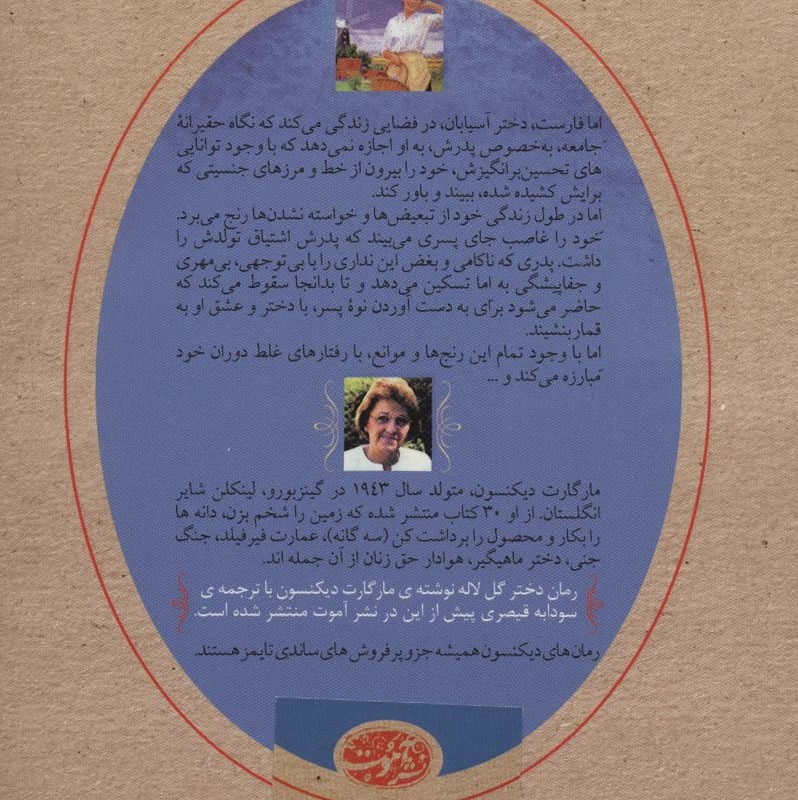 اما فارست، دختر آسیابان، در فضایی زندگی می‌کند که نگاه حقیرانهٔ
جامعه، به‌خصوص پدرش، به او اجازه نمی‌دهد که با وجود توانایی
های تحسین‌برانگیزش، خود را بیرون از خط و مرزهای جنسیتی که
برایش کشیده شده، ببیند و باور کند.
اما در طول زندگی خود از تبعیض‌ها و خواسته نشدن‌ها رنج می‌برد.
خود را غاصب جای پسری می‌بیند که پدرش اشتیاق تولدش را
داشت. پدری که ناکامی و بغض این نداری را با بی‌توجهی، بی‌مهری
و جفاپیشگی به اما تسکین می‌دهد و تا بدانجا سقوط می‌کند که
حاضر می‌شود برای به دست آوردن نوهٔ پسر، با دختر و عشق او به
قمار بنشیند.
اما با وجود تمام این رنج‌ها و موانع، با رفتارهای غلط دوران خود
مبارزه می‌کند و ...
مارگارت دیکنسون، متولد سال ۱۹٤۳ در گینزبورو، لینکلن شایر
انگلستان. از او ۳۰ کتاب منتشر شده که زمین را شخم بزن، دانه ها
را بکار و محصول را برداشت کن (سه گانه)، عمارت فیرفیلد، جنگ
جنی، دختر ماهیگیر، هوادار حق زنان از آن جمله اند.
رمان دختر گل لاله نوشته ی مارگارت دیکنسون با ترجمه ی
سودابه قیصری پیش از این در نشر آموت منتشر شده است.
رمان‌های دیکنسون همیشه جزو پرفروش های ساندی تایمز هستند.
نشر آموت